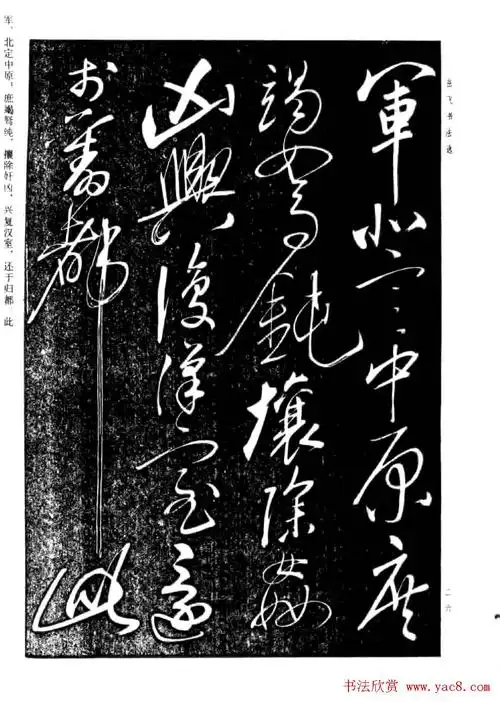 岳飞书法选
軍北定中原庶
竭駑鈍攘除姦
凶興復漢室還
於舊都此
军、北定中原，庶竭驽纯，攘除奸凶、兴复汉室，还于归都 此
二六
书法欣赏 www.yac8.com